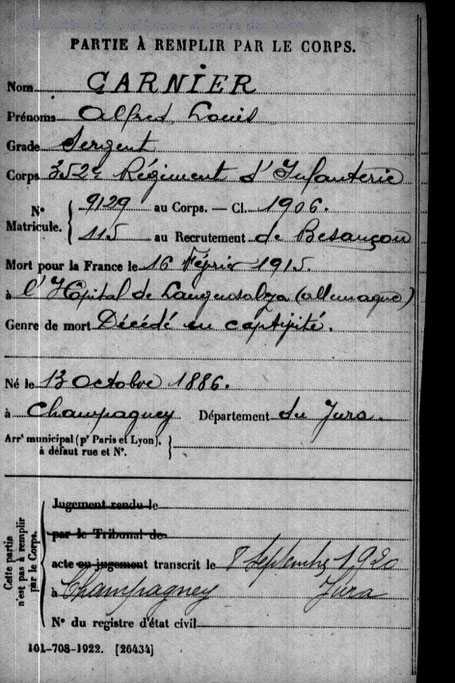 PARTIE À REMPLIR PAR LE CORPS.
Nom GARNIER
Prénoms Alfred Louis
Grade Sergent
Corps 352e Régiment d'Infanterie
N° Matricule. { 9129 au Corps. — Cl. 1906.
115 au Recrutement de Besançon
Mort pour la France le 16 Février 1915.
à l'Hôpital de Langensalza (allemagne)
Genre de mort Décédé en captivité.
Né le 13 Octobre 1886.
à Champagney Département du Jura.
Arrt municipal (pr Paris et Lyon),
à défaut rue et N°.
Cette partie n'est pas à remplir par le Corps.
Jugement rendu le
par le Tribunal de
acte ou jugement transcrit le 7 Septembre 1920
à Champagney Jura
N° du registre d'état civil
101-708-1922. [26434]